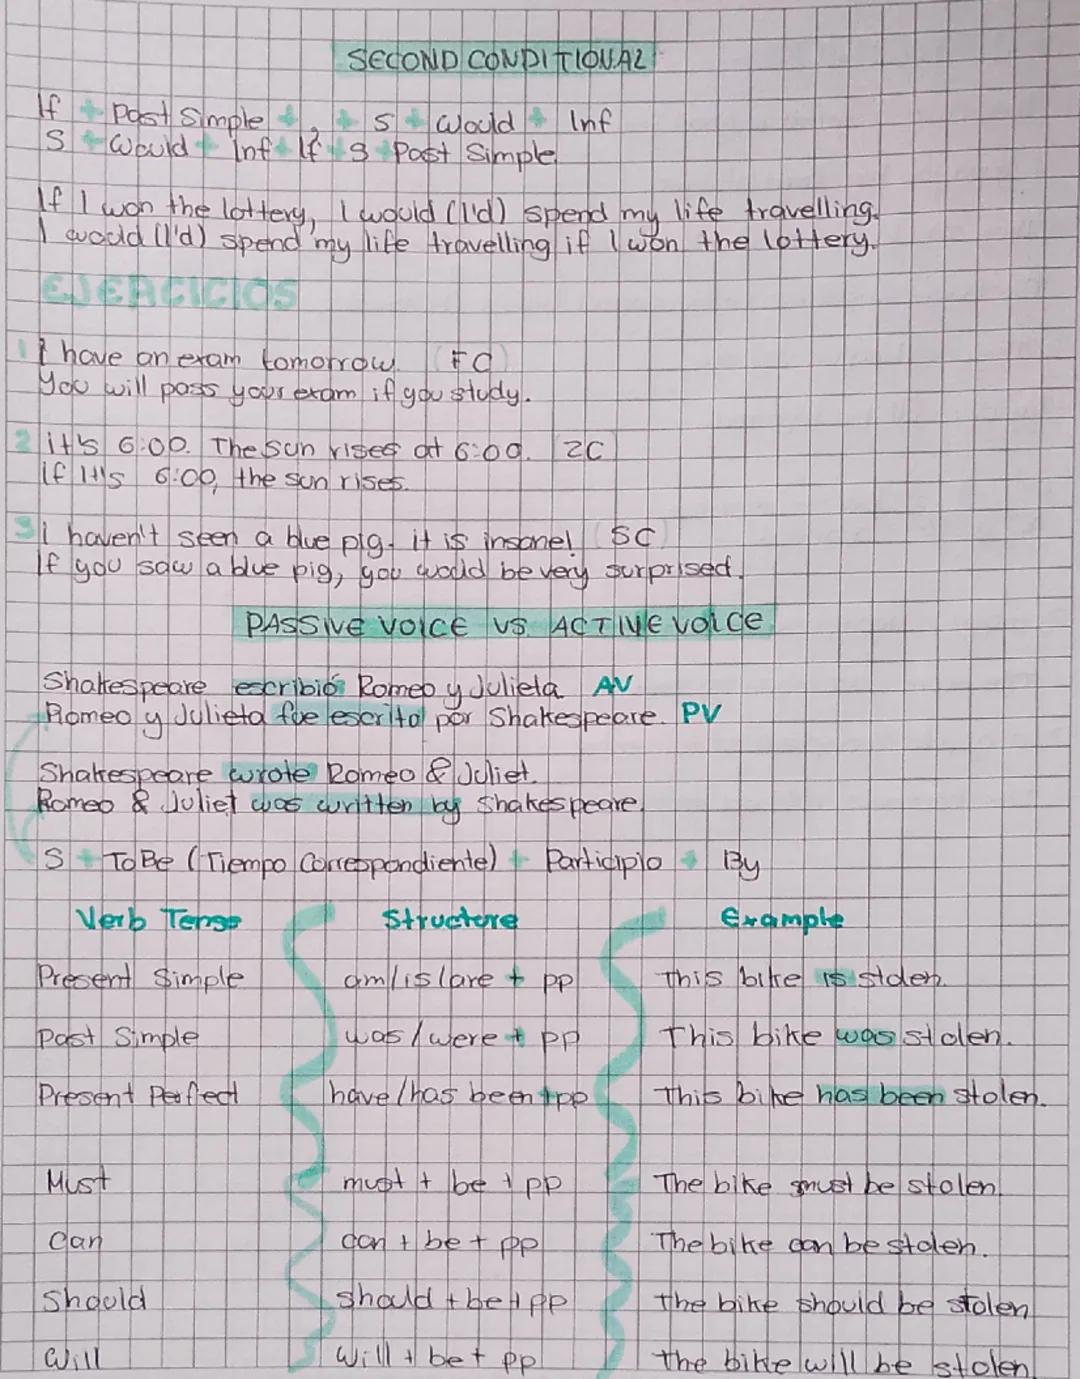 SECOND CONDITIONAL
If + Past Simple + , + S + Would + Inf
S + Would + Inf + If + S + Past Simple
If I won the lottery, I would (I'd) spend my life travelling.
I would (I'd) spend my life travelling if I won the lottery.
EJERCICIOS
1 I have an exam tomorrow. (FC)
You will pass your exam if you study.
2 it's 6:00. The sun rises at 6:00. (ZC)
if it's 6:00, the sun rises.
3 I haven't seen a blue pig. it is insane! (SC)
If you saw a blue pig, you would be very surprised.
PASSIVE VOICE VS. ACTIVE VOICE
Shakespeare escribió Romeo y Julieta AV
Romeo y Julieta fue escrito por Shakespeare. PV
Shakespeare wrote Romeo & Juliet.
Romeo & Juliet was written by Shakespeare.
S + To Be (Tiempo Correspondiente) + Participio + By
Verb Tense Structure Example
Present Simple am/is/are + pp This bike is stolen.
Past Simple was/were + pp This bike was stolen.
Present Perfect have/has been + pp This bike has been stolen.
Must must + be + pp The bike must be stolen.
Can can + be + pp The bike can be stolen.
Should should + be + pp The bike should be stolen
Will Will + be + pp The bike will be stolen.